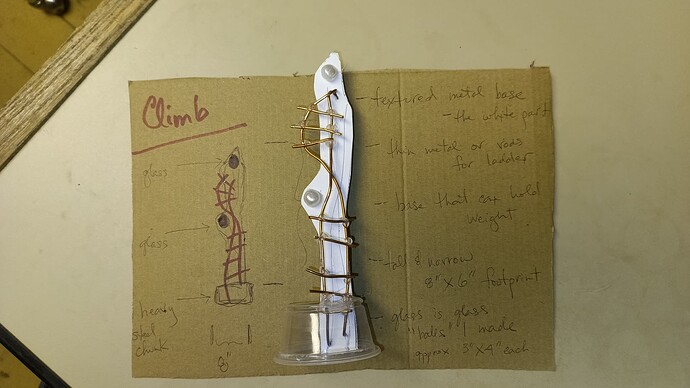 Climb
glass
glass
heavy
steel
chunk
8"
- textured metal base
- the white part
- thin metal or rods
for ladder
- base that can hold
weight
- tall & narrow
8" X 6" footprint
- glass is glass
"balls" I made
approx 3" X 4" each